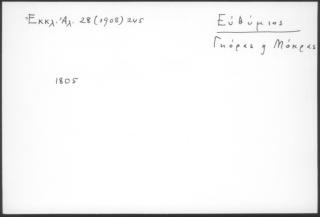 Ἐκκλ. Ἀλ. 28 (1908) 245
Εὐθύμιος
Γκόρας ἢ Μόκρας
1805